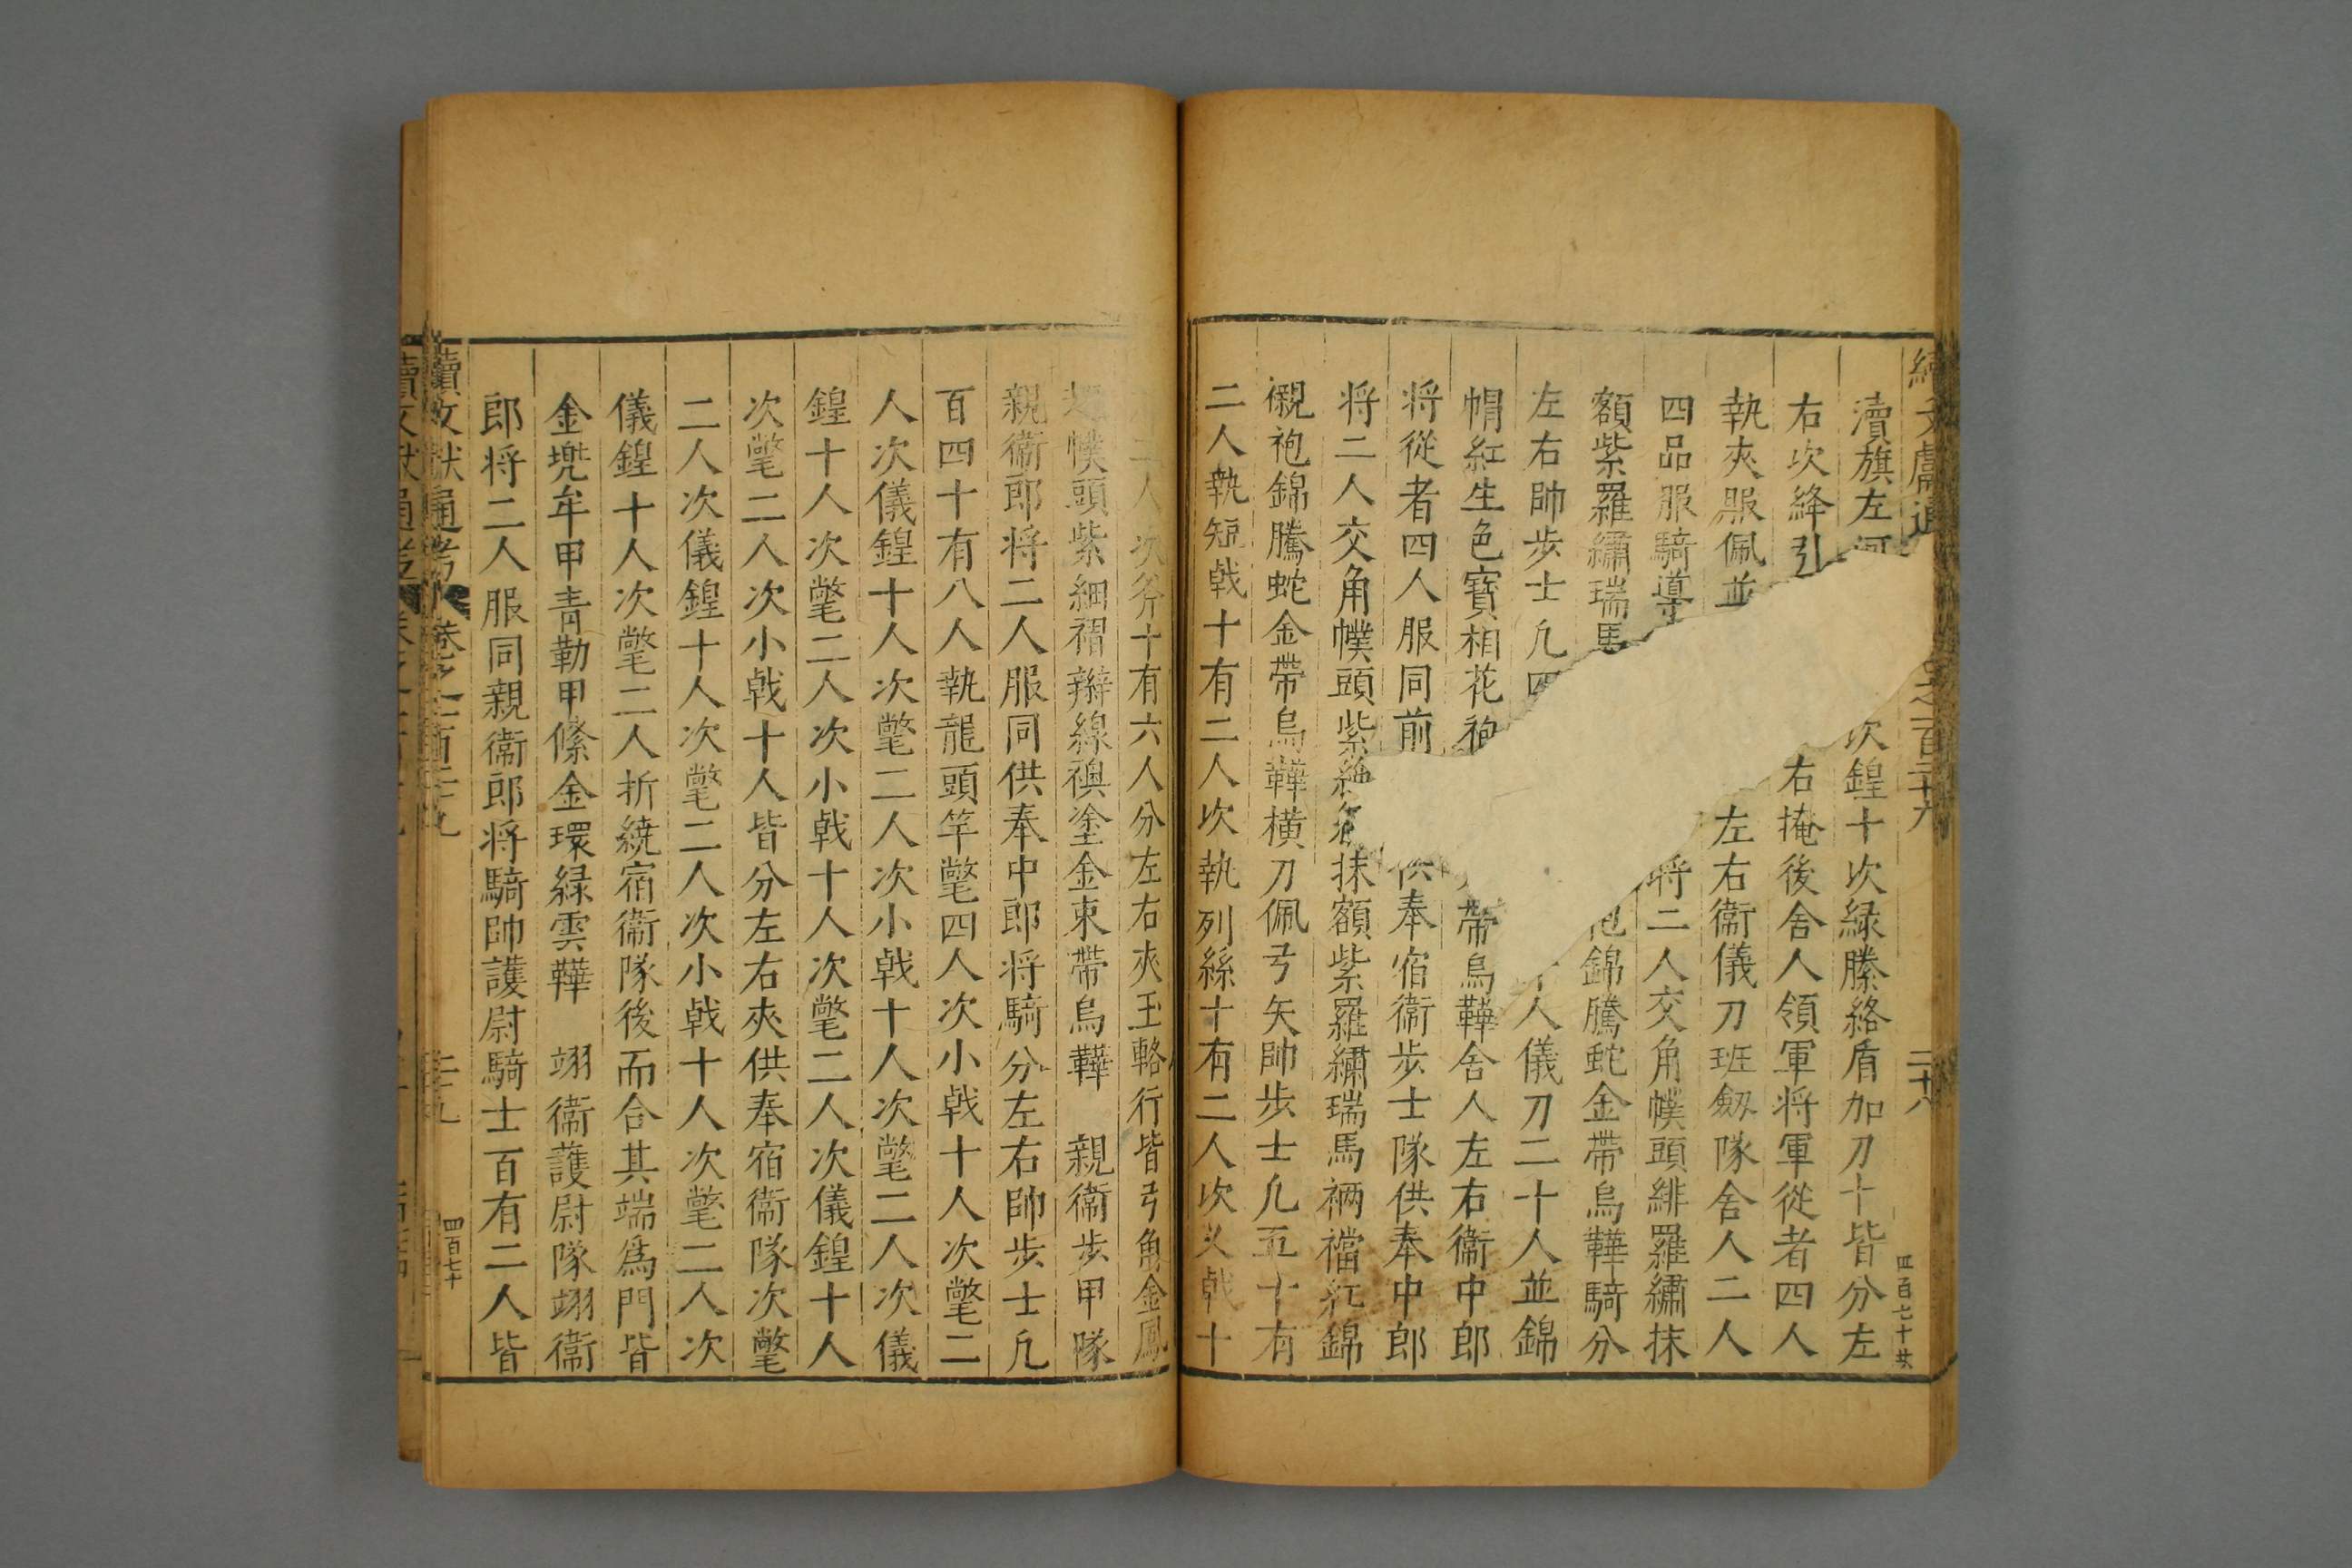 瀆旗左
次鍠十次緑縢絡盾加刀十皆分左
右次絳引
右掩後舎人領軍将軍從者四人
執夾服佩並
左右衞儀刀班劔隊舎人二人
四品服騎導
将二人交角幞頭緋羅繡抹
額紫羅繡瑞馬
袍錦騰蛇金帶烏鞾騎分
左右帥步士凢四
人儀刀二十人並錦
帽紅生色寳相花袍
帶烏鞾舎人左右衞中郎
将從者四人服同前
供奉宿衞步士隊供奉中郎
将二人交角幞頭紫
抹額紫羅繡瑞馬裲襠紅錦
襯袍錦騰蛇金帶烏鞾横刀佩弓矢帥步士凢五十有
二人執短戟十有二人次執列絲十有二人次乂戟十
二人次斧十有六人分左右夾玉輅行皆弓角金鳳
幞頭紫細褶辮線襖塗金束帶烏鞾 親衞步甲隊
親衞郎将二人服同供奉中郎将騎分左右帥步士凢
百四十有八人執龍頭竿氅四人次小戟十人次氅二
人次儀鍠十人次氅二人次小戟十人次氅二人次儀
鍠十人次氅二人次小戟十人次氅二人次儀鍠十人
次氅二人次小戟十人皆分左右夾供奉宿衞隊次氅
二人次儀鍠十人次氅二人次小戟十人次氅二人次
儀鍠十人次氅二人折繞宿衞隊後而合其端爲門皆
金兠牟甲青勒甲絛金環緑雲鞾 翊衞護尉隊翊衞
郎将二人服同親衞郎将騎帥護尉騎士百有二人皆
續文獻通考
卷之一百二十九
二十九
四百七十